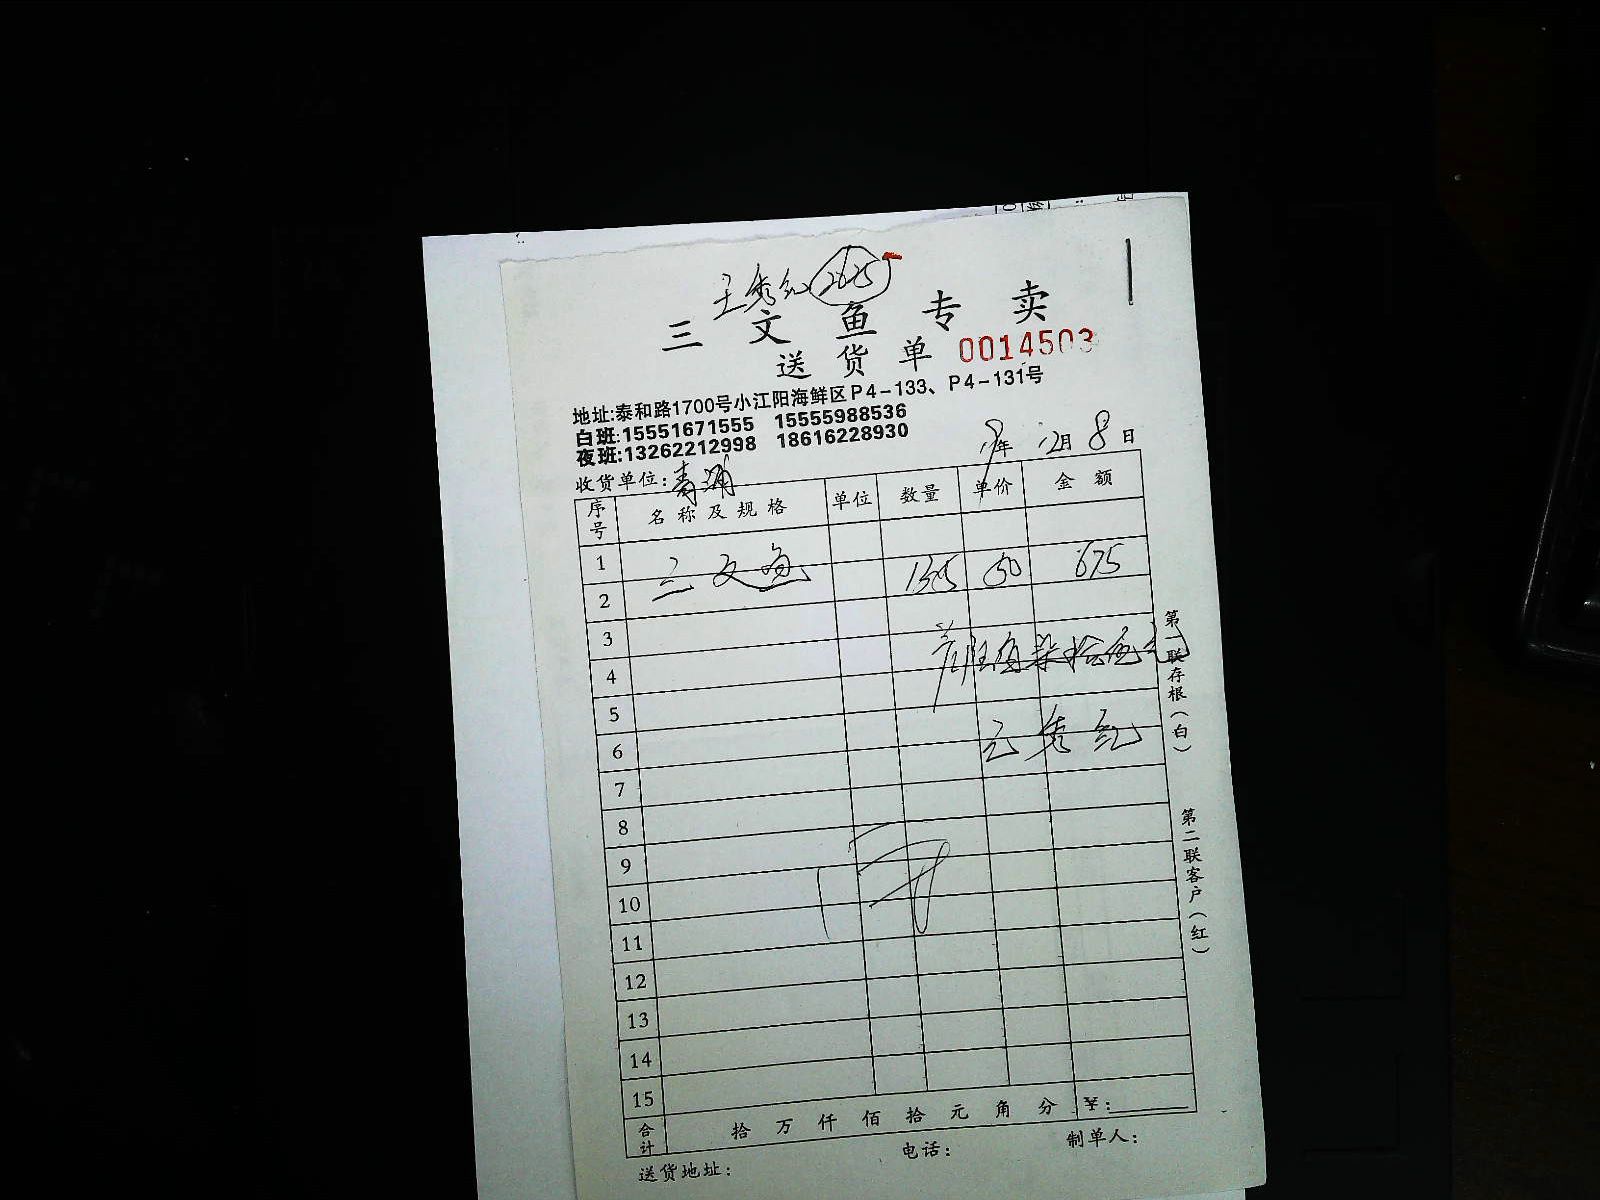 王秀红 2625
三文鱼专卖
送货单 0014503
地址:泰和路1700号小江阳海鲜区P4-133、P4-131号
白班:15551671555 15555988536
夜班:13262212998 18616228930
年 12月8日
收货单位:青浦
序号 名称及规格 单位 数量 单价 金额
1
三文鱼 13.5 50 675
2
3
4
5
6
7
8
9
10
11
12
13
14
15
合计 拾 万 仟 佰 拾 元 角 分 ¥:
送货地址: 电话: 制单人:
第一联存根(白)
第二联客户(红)